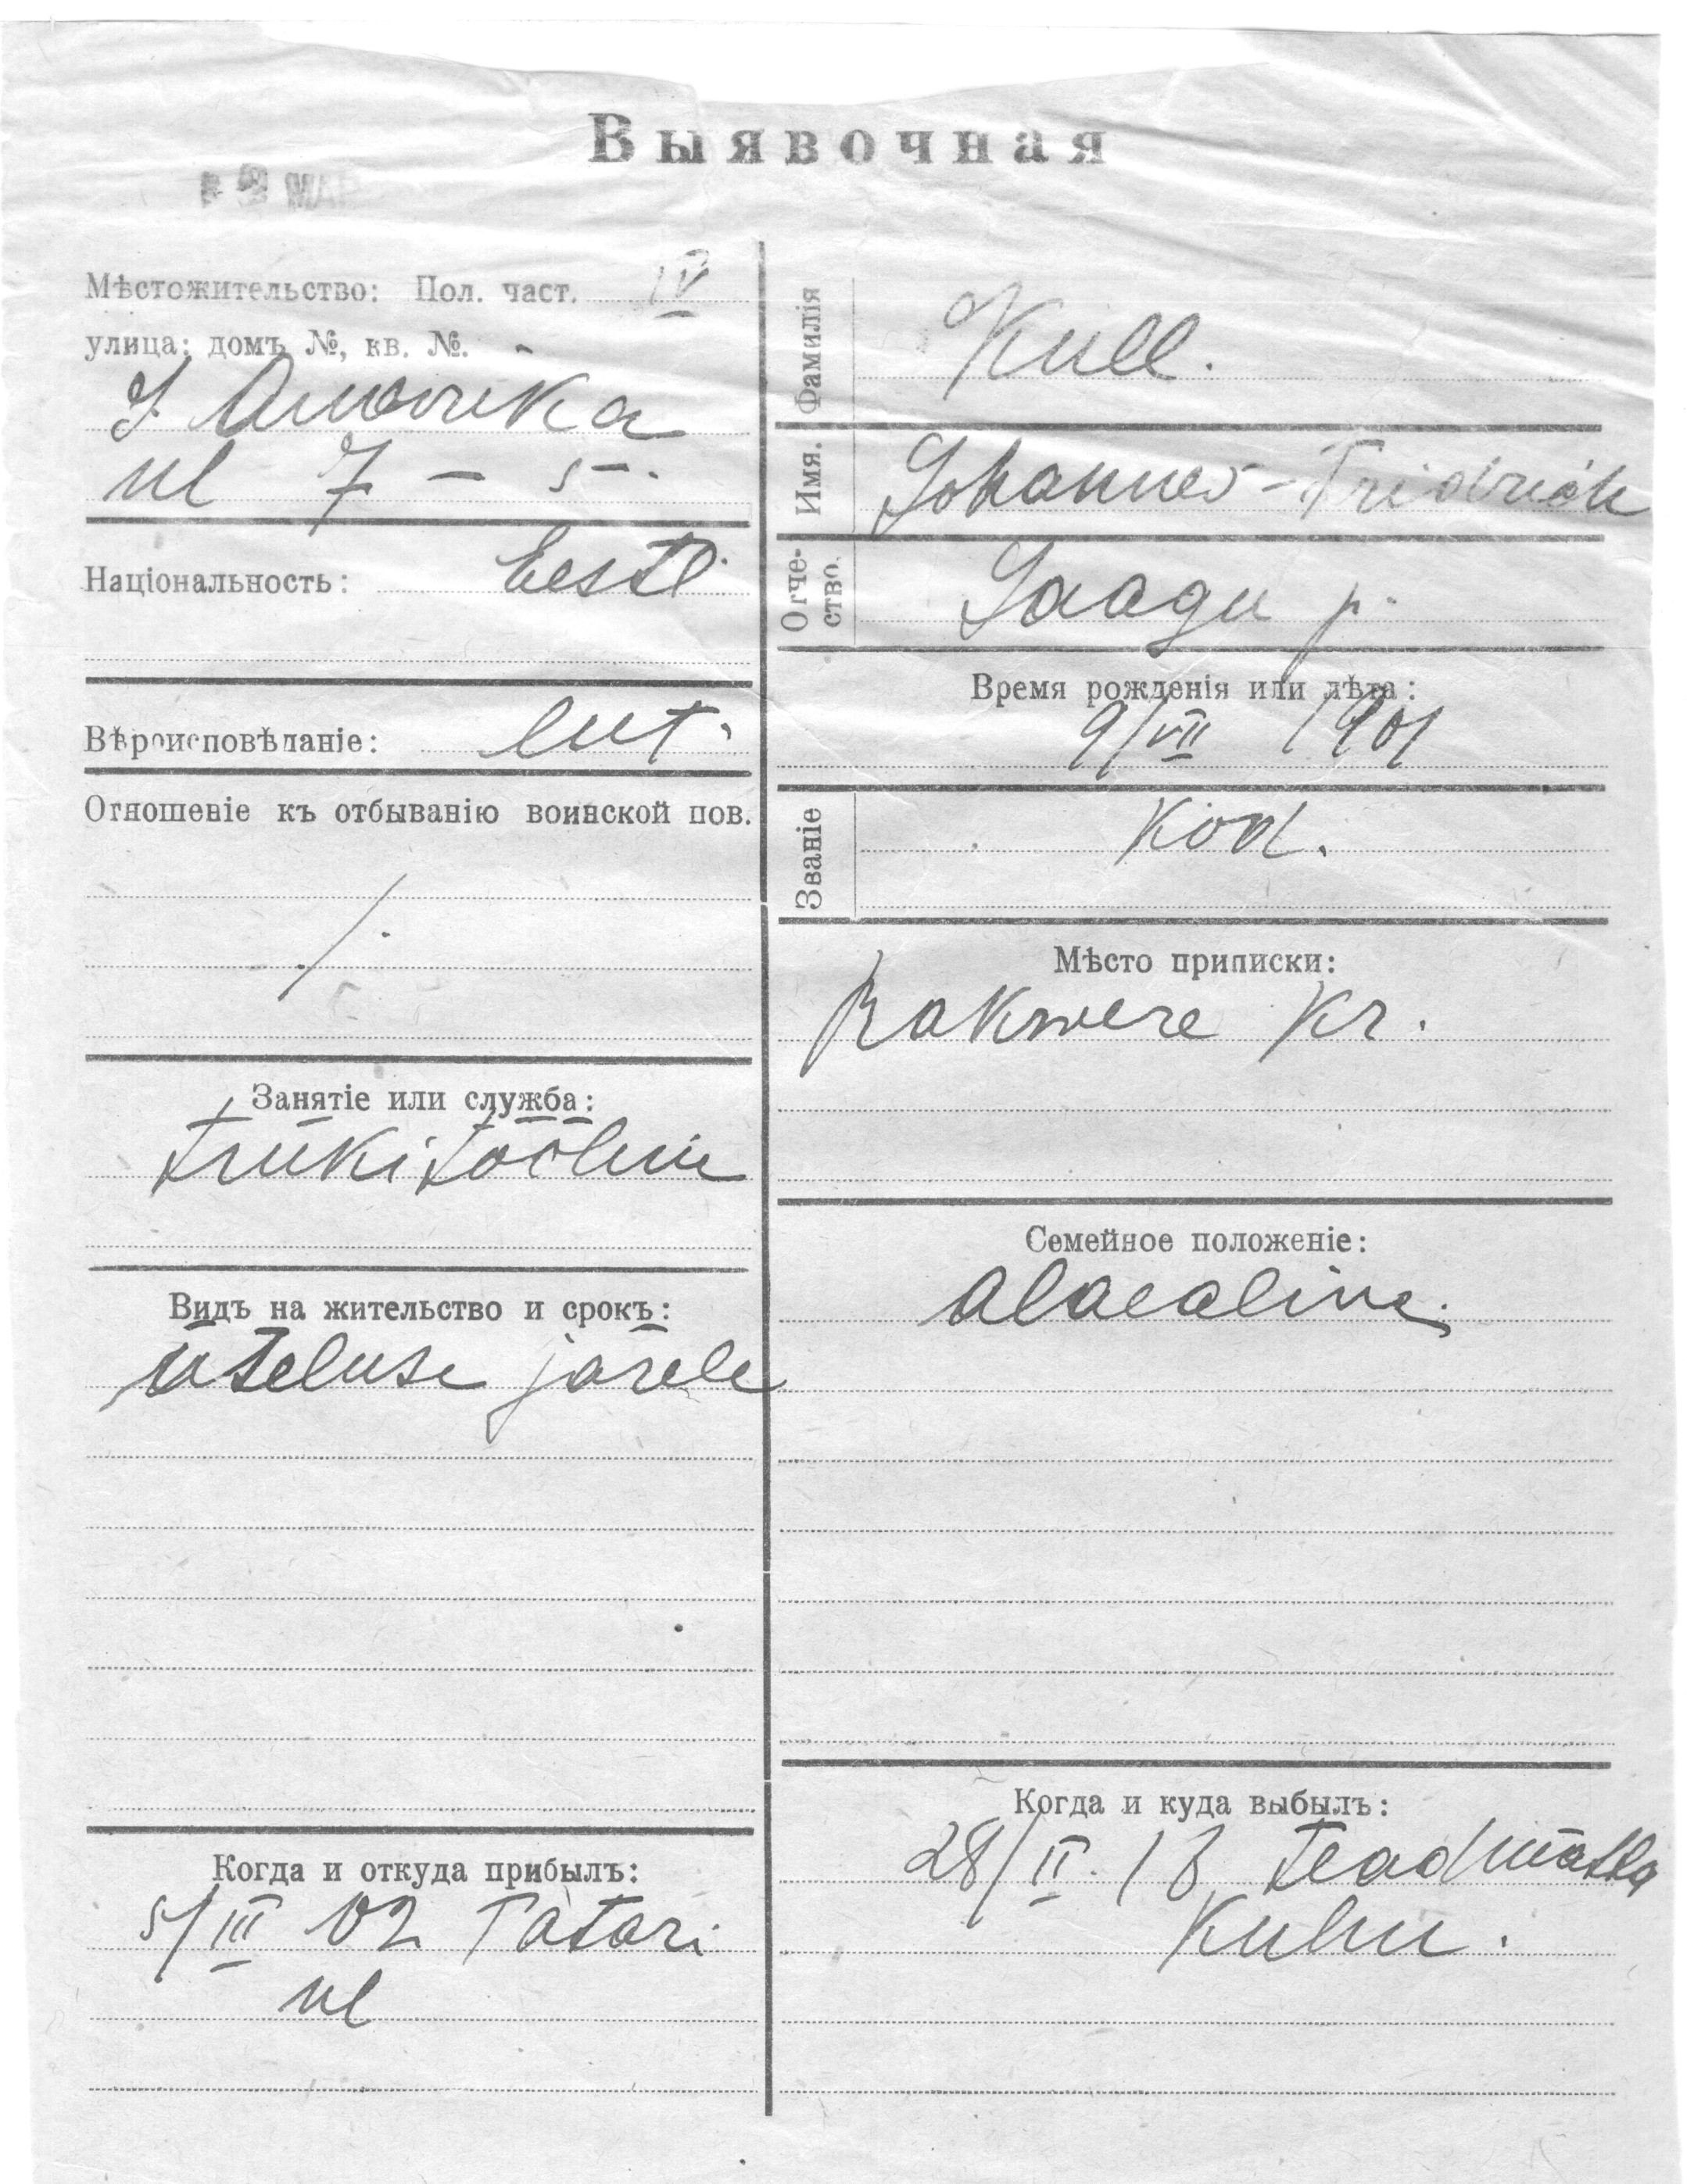 Выявочная
МАР
Мѣстожительство: Пол. част. IV
улица: домъ №, кв. №.
J. Ameerika
ul 7 – 5.
Національность: Eesti
Вѣроисповѣданіе: lut.
Отношеніе къ отбыванію воинской пов.
/.
Занятіе или служба:
trükitööline
Видъ на жительство и срокъ:
üteluse järele
Когда и откуда прибылъ:
5/III 02 Tatari
ul
Фамилія Kull.
Имя. Johannes-Fridrich
Отчество. Jaagu p.
Время рожденія или лѣта:
9/VII 1901
Званіе Kod.
Мѣсто приписки:
Rakwere Kr.
Семейное положеніе:
alaealine.
Когда и куда выбылъ:
28/II. 18 teadmata
Kuhu.